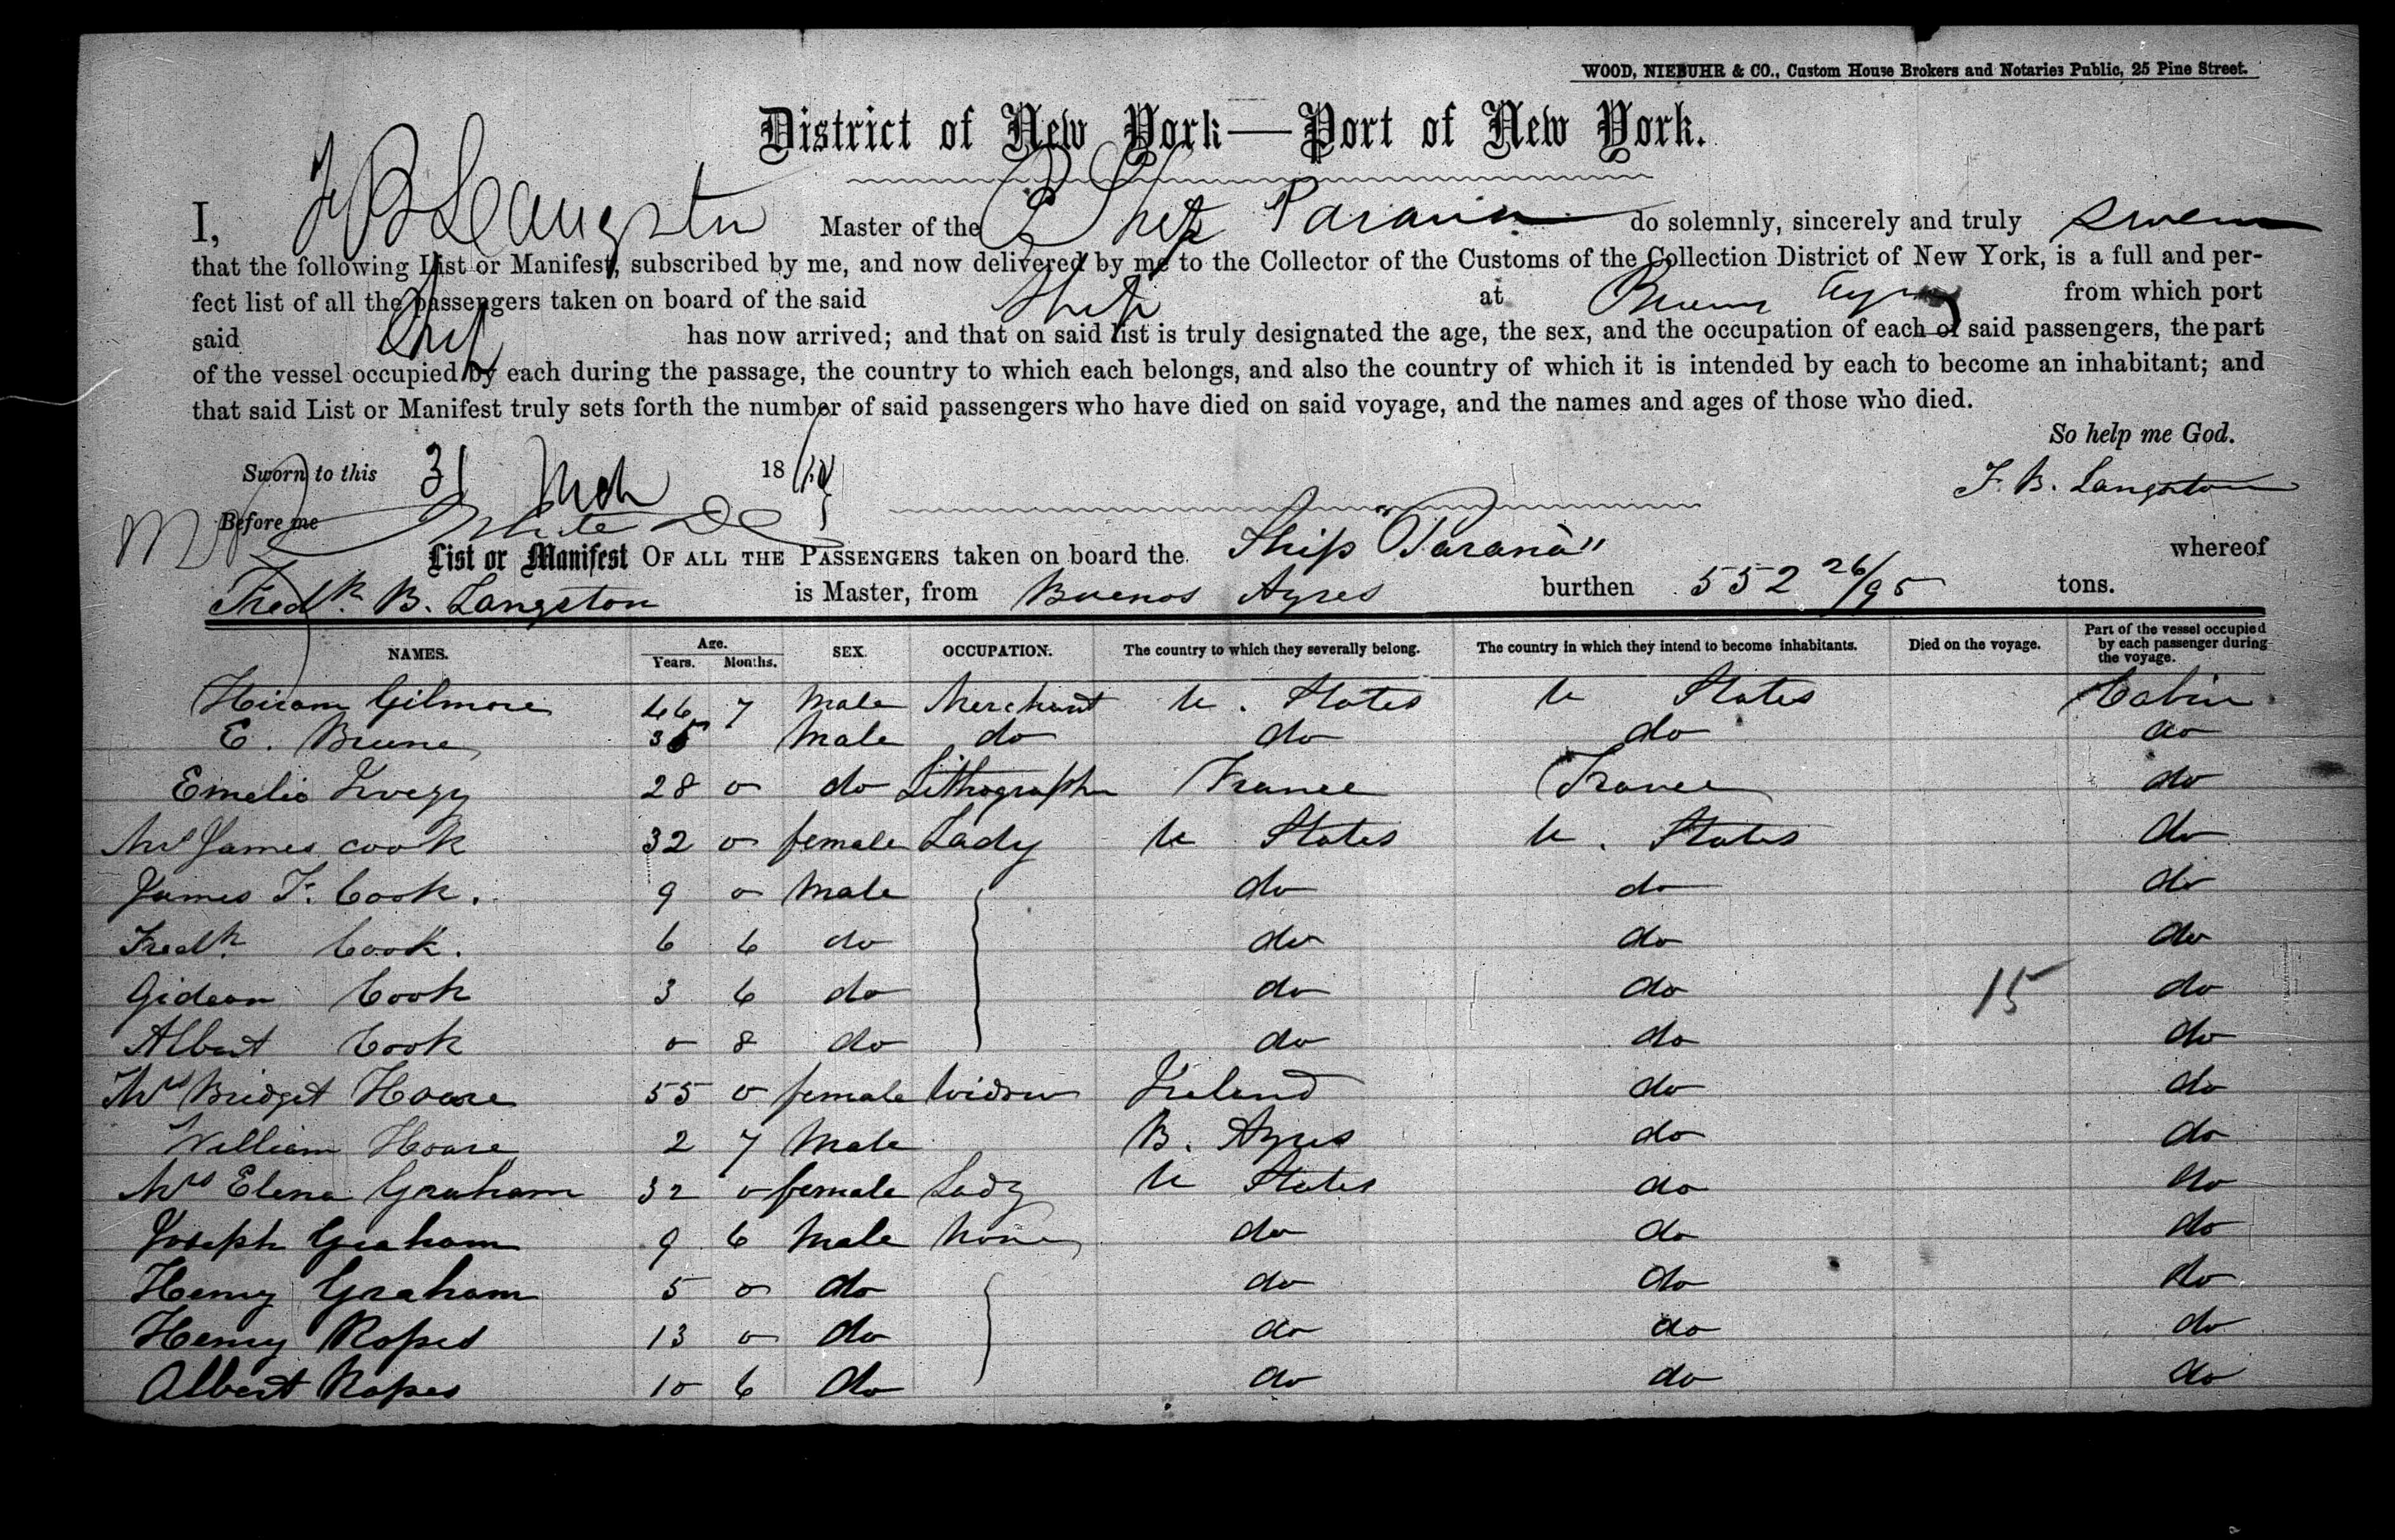 WOOD, NIEBUHR & CO., Custom House Brokers and Notaries Public, 25 Pine Street.
District of New York—Port of New York.
I, F B Langston Master of the Ship Parana do solemnly, sincerely and truly swear
that the following List or Manifest, subscribed by me, and now delivered by me to the Collector of the Customs of the Collection District of New York, is a full and per-
fect list of all the passengers taken on board of the said Ship at Buenos Ayres from which port
said Ship has now arrived; and that on said list is truly designated the age, the sex, and the occupation of each of said passengers, the part
of the vessel occupied by each during the passage, the country to which each belongs, and also the country of which it is intended by each to become an inhabitant; and
that said List or Manifest truly sets forth the number of said passengers who have died on said voyage, and the names and ages of those who died.
So help me God.
Sworn to this 31 Mch 18
F. B. Langston
Before me
List or Manifest OF ALL THE PASSENGERS taken on board the Ship "Paranà" whereof
Fredk. B. Langston is Master, from Buenos Ayres burthen 552 26/95 tons.
NAMES. Age. Years. Months. SEX. OCCUPATION. The country to which they severally belong. The country in which they intend to become inhabitants. Died on the voyage. Part of the vessel occupied by each passenger during the voyage.
Hiram Gilmore 46 7 Male Merchant U. States U States Cabin
E. Brune 35 Male do do do do
Emelio 28 0 do Lithograph France France do
Mrs James Cook 32 0 female Lady U States U. States do
James F. Cook. 9 0 Male do do do
Fredk. Cook. 6 6 do do do do
Gideon Cook 3 6 do do do 15 do
Albert Cook 0 8 do do do do
Mrs Bridget Hoare 55 0 female Widow Ireland do do
William Hoare 2 7 Male B. Ayres do do
Mrs Elena Graham 32 0 female Lady U States do do
Joseph Graham 9 6 Male None do do do
Henry Graham 5 0 do do do do
Henry Ropes 13 0 do do do do
Albert Ropes 10 6 do do do do